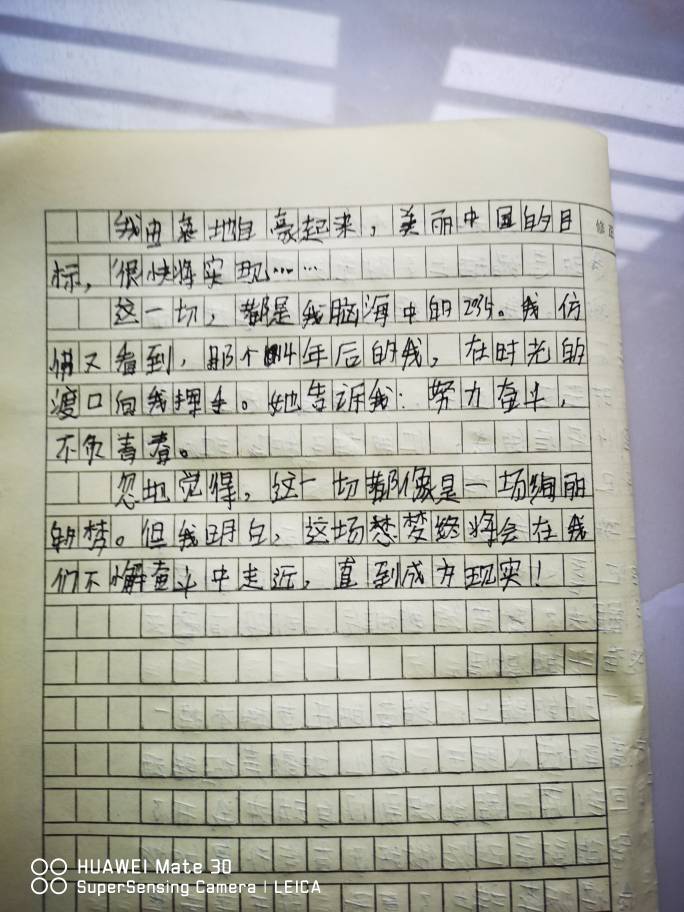 我由衷地自豪起来，美丽中国的目
标，很快将实现……
这一切，都是我脑海中的2035。我仿
佛又看到，那个14年后的我，在时光的
渡口向我挥手。她告诉我：努力奋斗，
不负青春。
忽地觉得，这一切都像是一场绚丽
的梦。但我明白，这场梦终将会在我
们不懈奋斗中走近，直到成为现实！
HUAWEI Mate 30
SuperSensing Camera | LEICA